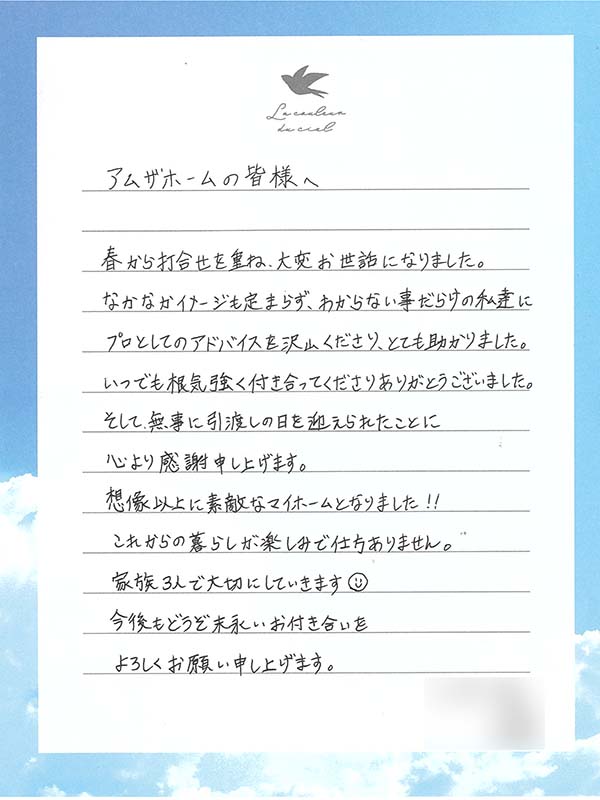 La couleur
du ciel
アムザホームの皆様へ
春から打合せを重ね、大変お世話になりました。
なかなかイメージも定まらず、わからない事だらけの私達に
プロとしてのアドバイスを沢山くださり、とても助かりました。
いつでも根気強く付き合ってくださりありがとうございました。
そして、無事に引渡しの日を迎えられたことに
心より感謝申し上げます。
想像以上に素敵なマイホームとなりました!!
これからの暮らしが楽しみで仕方ありません。
家族3人で大切にしていきます☺
今後もどうぞ末永いお付き合いを
よろしくお願い申し上げます。